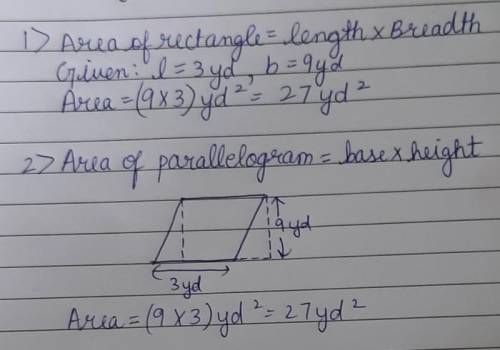 1> Area of rectangle = length × Breadth
Given: l = 3yd, b = 9yd
Area = (9 × 3) yd² = 27yd²
2> Area of parallelogram = base × height
9yd
3yd
Area = (9 × 3) yd² = 27yd²